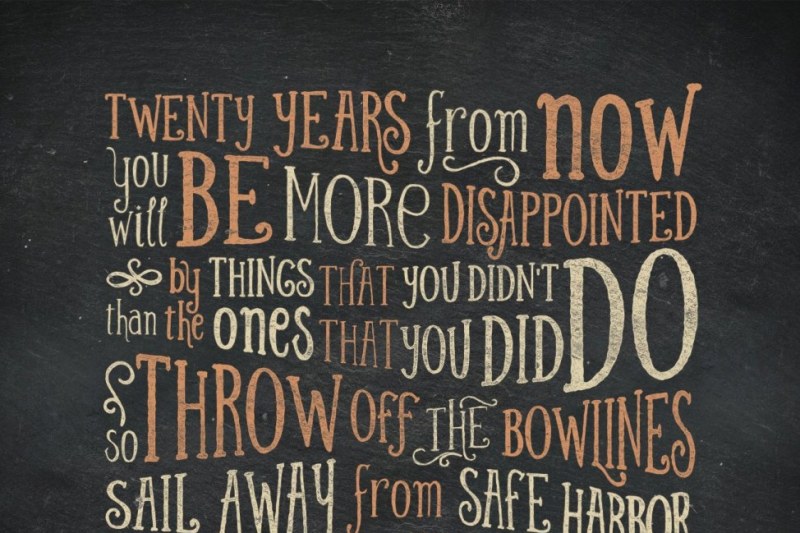 TWENTY YEARS from now
you will BE MORE DISAPPOINTED
by THINGS THAT YOU DIDN'T DO
than the ones THAT YOU DID
so THROW OFF THE BOWLINES
SAIL AWAY from SAFE HARBOR